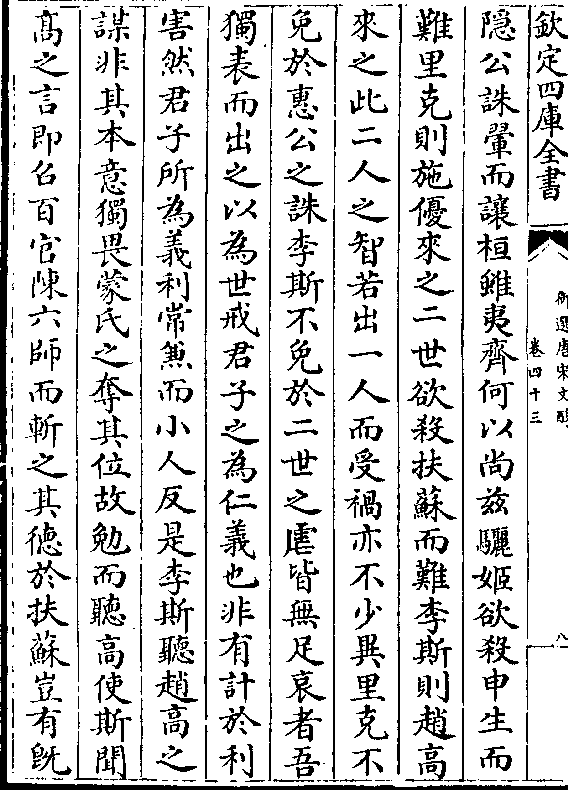 欽定四庫全書
御選唐宋文醇
卷四十三
八
隠公誅翬而讓桓雖夷齊何以尚兹驪姬欲殺申生而
難里克則施優來之二世欲殺扶蘇而難李斯則趙高
來之此二人之智若出一人而受禍亦不少異里克不
免於惠公之誅李斯不免於二世之虐皆無足哀者吾
獨表而出之以為世戒君子之為仁義也非有計於利
害然君子所為義利常兼而小人反是李斯聽趙高之
謀非其本意獨畏蒙氏之奪其位故勉而聽高使斯聞
髙之言即召百官陳六師而斬之其徳於扶蘇豈有既